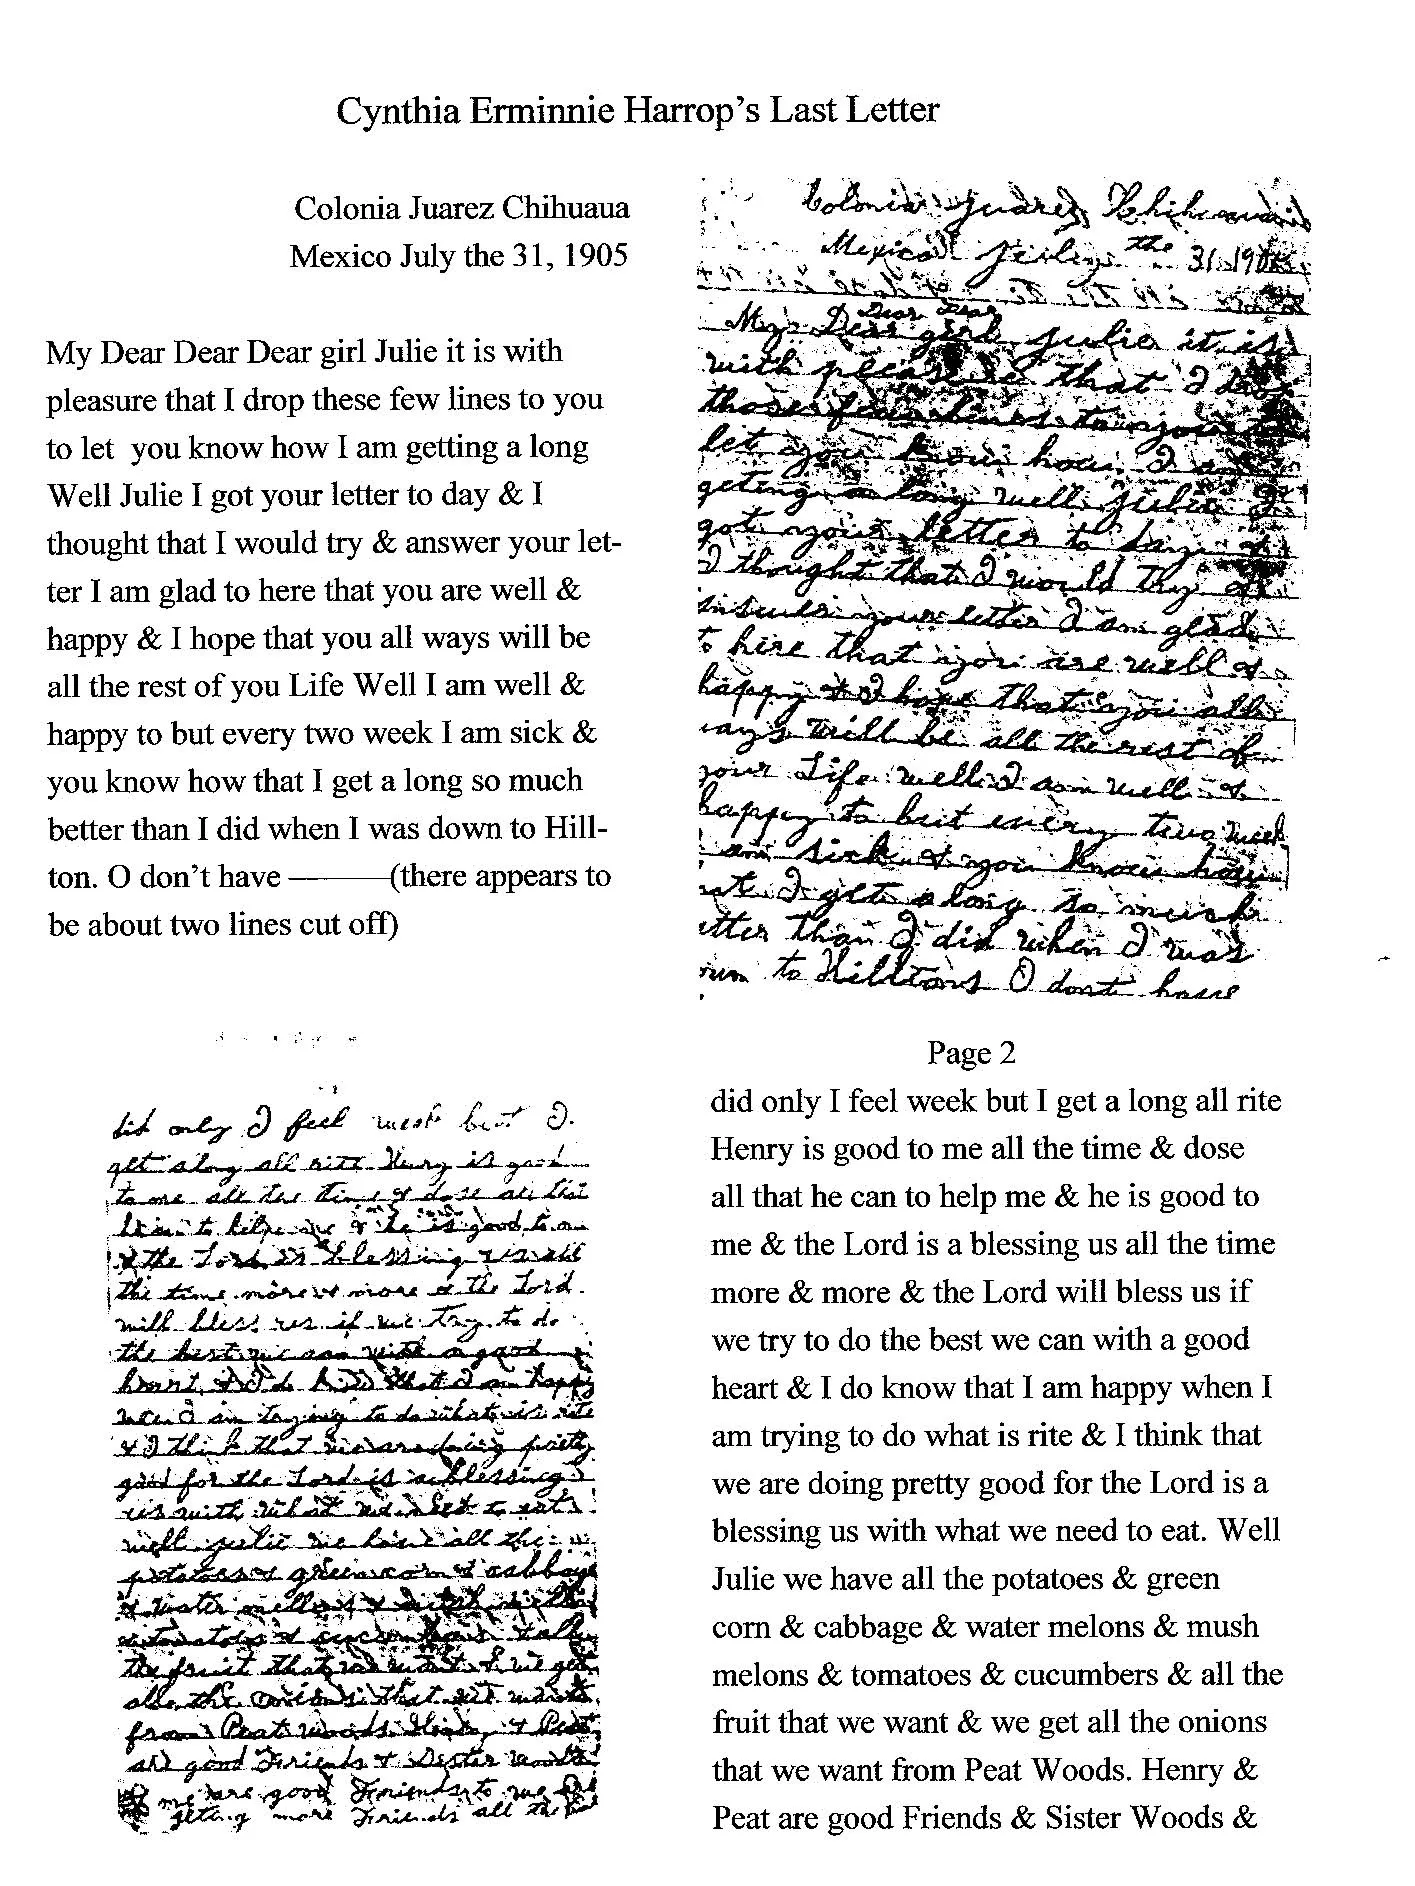 Cynthia Erminnie Harrop's Last Letter
Colonia Juarez Chihuaua
Mexico July the 31, 1905
My Dear Dear Dear girl Julie it is with
pleasure that I drop these few lines to you
to let you know how I am getting a long
Well Julie I got your letter to day & I
thought that I would try & answer your let-
ter I am glad to here that you are well &
happy & I hope that you all ways will be
all the rest of you Life Well I am well &
happy to but every two week I am sick &
you know how that I get a long so much
better than I did when I was down to Hill-
ton. O don't have ———(there appears to
be about two lines cut off)
Colonia Juarez Chihuaua
Mexico July the 31 1905
Dear Dear
My Dear girl Julie it is
with pleasure that I
those few lines to you
let you know how I am
geting a long well Julie I
got your letter to day &
I thought that I would try &
your letter I am glad
to hire that you are well &
happy & I hope that you all
ways will be all the rest of
your Life well I am well &
happy to but every two week
am sick & you know how
I get a long so much
etter than I did when I was
to Hilltons O dont have
did only I feel week but I
get along all rite Henry is good
to me all the time & dose all that
he can to help me & he is good to me
& the Lord is blessing us all
the time more & more & the Lord
will bless us if we try to do
the best we can with a good
heart & I do know that I am happy
when I am trying to do what is rite
& I think that we are doing pretty
good for the Lord is a blessing
us with what we need to eat
well Julie we have all the
potatoes & green corn & cabbage
& water mellons & mellons
& tomatoes & cucumbers & all
the fruit that we want & we get
all the onions that we want
from Peat Woods Henry & Peat
are good Friends & Sister Woods
& me are good Friends to we are
geting more Friends all the time
Page 2
did only I feel week but I get a long all rite
Henry is good to me all the time & dose
all that he can to help me & he is good to
me & the Lord is a blessing us all the time
more & more & the Lord will bless us if
we try to do the best we can with a good
heart & I do know that I am happy when I
am trying to do what is rite & I think that
we are doing pretty good for the Lord is a
blessing us with what we need to eat. Well
Julie we have all the potatoes & green
corn & cabbage & water melons & mush
melons & tomatoes & cucumbers & all the
fruit that we want & we get all the onions
that we want from Peat Woods. Henry &
Peat are good Friends & Sister Woods &